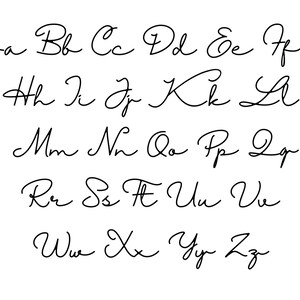 a Bb Cc Dd Ee Ff
Hh Ii Jj Kk Ll
Mm Nn Oo Pp Qq
Rr Ss Tt Uu Vv
Ww Xx Yy Zz